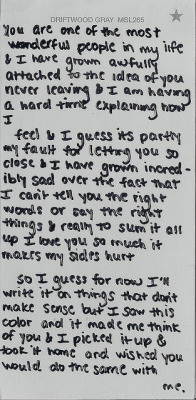 DRIFTWOOD GRAY MSL265
You are one of the most
wonderful people in my life
& I have grown awfully
attached to the idea of you
never leaving & I am having
a hard time explaining how
I
feel & I guess its partly
my fault for letting you so
close & I have grown incred-
ibly sad over the fact that
I can't tell you the right
words or say the right
things & really to sum it all
up I love you so much it
makes my sides hurt
so I guess for now I'll
write it on things that don't
make sense but I saw this
color and it made me think
of you & I picked it up &
took it home and wished you
would do the same with
me.